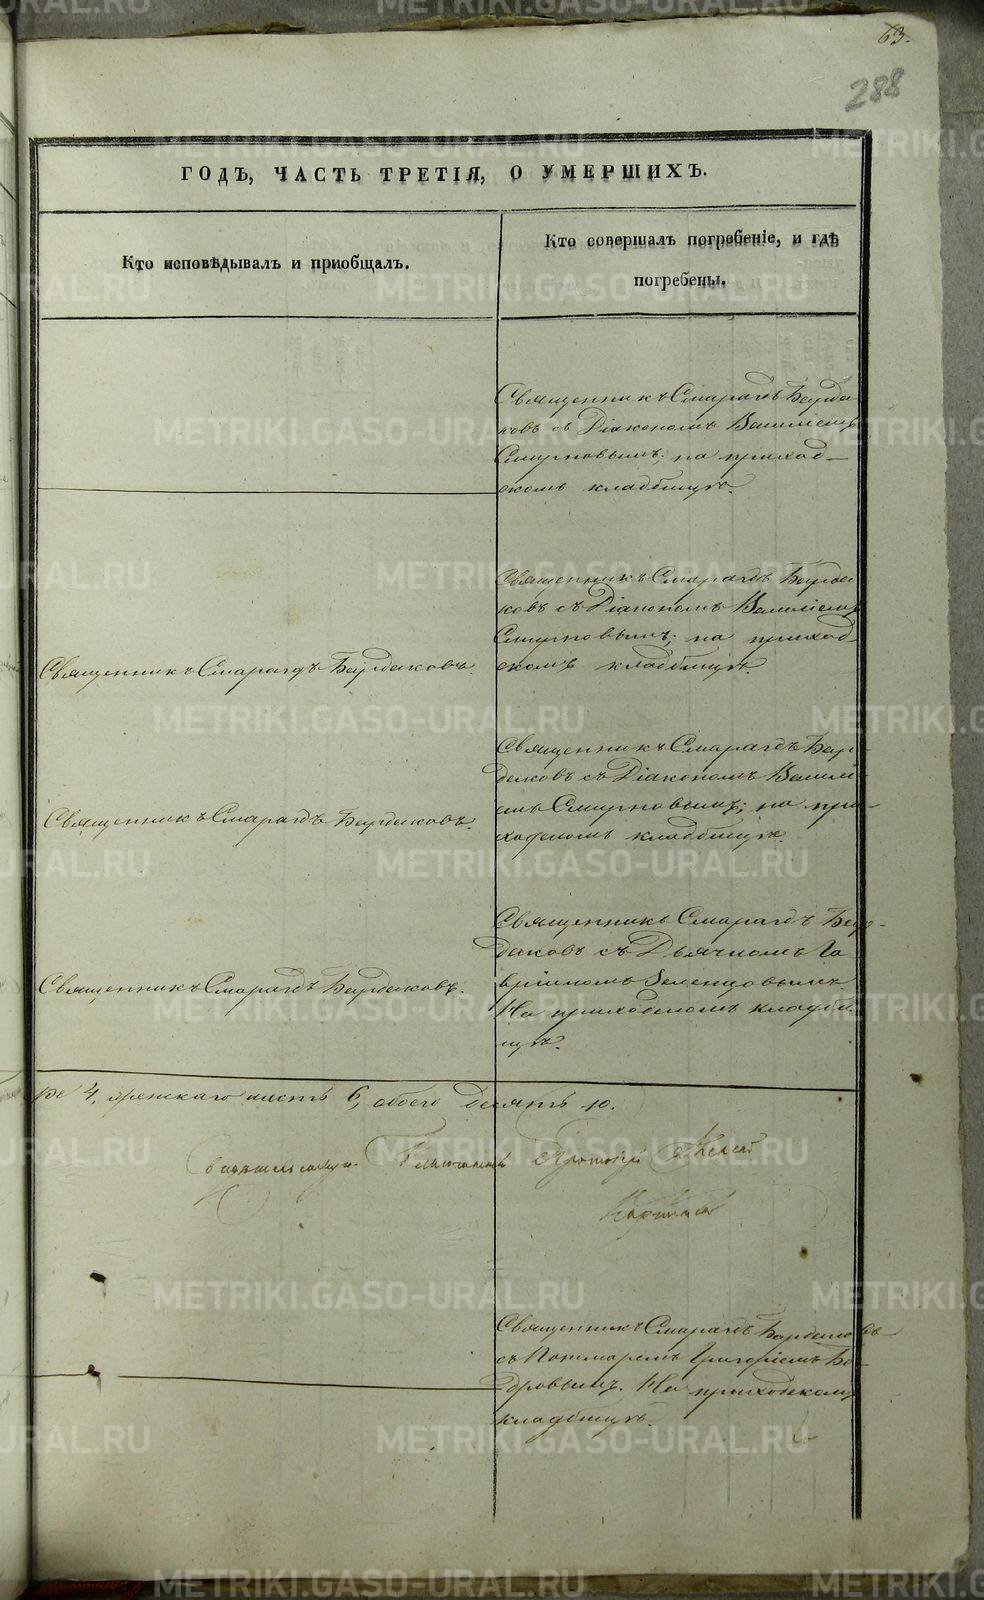 63.
288
ГОДЪ, ЧАСТЬ ТРЕТІЯ, О УМЕРШИХЪ.
Кто исповѣдывалъ и пріобщалъ.
Кто совершалъ погребеніе, и гдѣ
погребены.
Священникъ Смарагдъ Бурда
ковъ съ Діакономъ Василіемъ
Смирновымъ; на приход-
скомъ кладбищѣ.
Священникъ Смарагдъ Бурда
ковъ съ Діакономъ Василіемъ
Смирновымъ; на приход-
скомъ кладбищѣ.
Священникъ Смарагдъ Бурдаковъ.
Священникъ Смарагдъ Бур-
даковъ съ Діакономъ Василі-
емъ Смирновымъ; на при-
ходскомъ кладбищѣ.
Священникъ Смарагдъ Бурдаковъ.
Священникъ Смарагдъ Бур-
даковъ съ Дьячкомъ Га
вріиломъ Зеленцовымъ.
На приходскомъ кладби-
щѣ.
Священникъ Смарагдъ Бурдаковъ.
ре 4, женскаго шесть 6, обоего десять 10.
Протоіерей
Священникъ Смарагдъ Бурдаковъ
съ Пономаремъ Григоріемъ Бо-
дровымъ. На приходскомъ
кладбищѣ.
METRIKI.GASO-URAL.RU